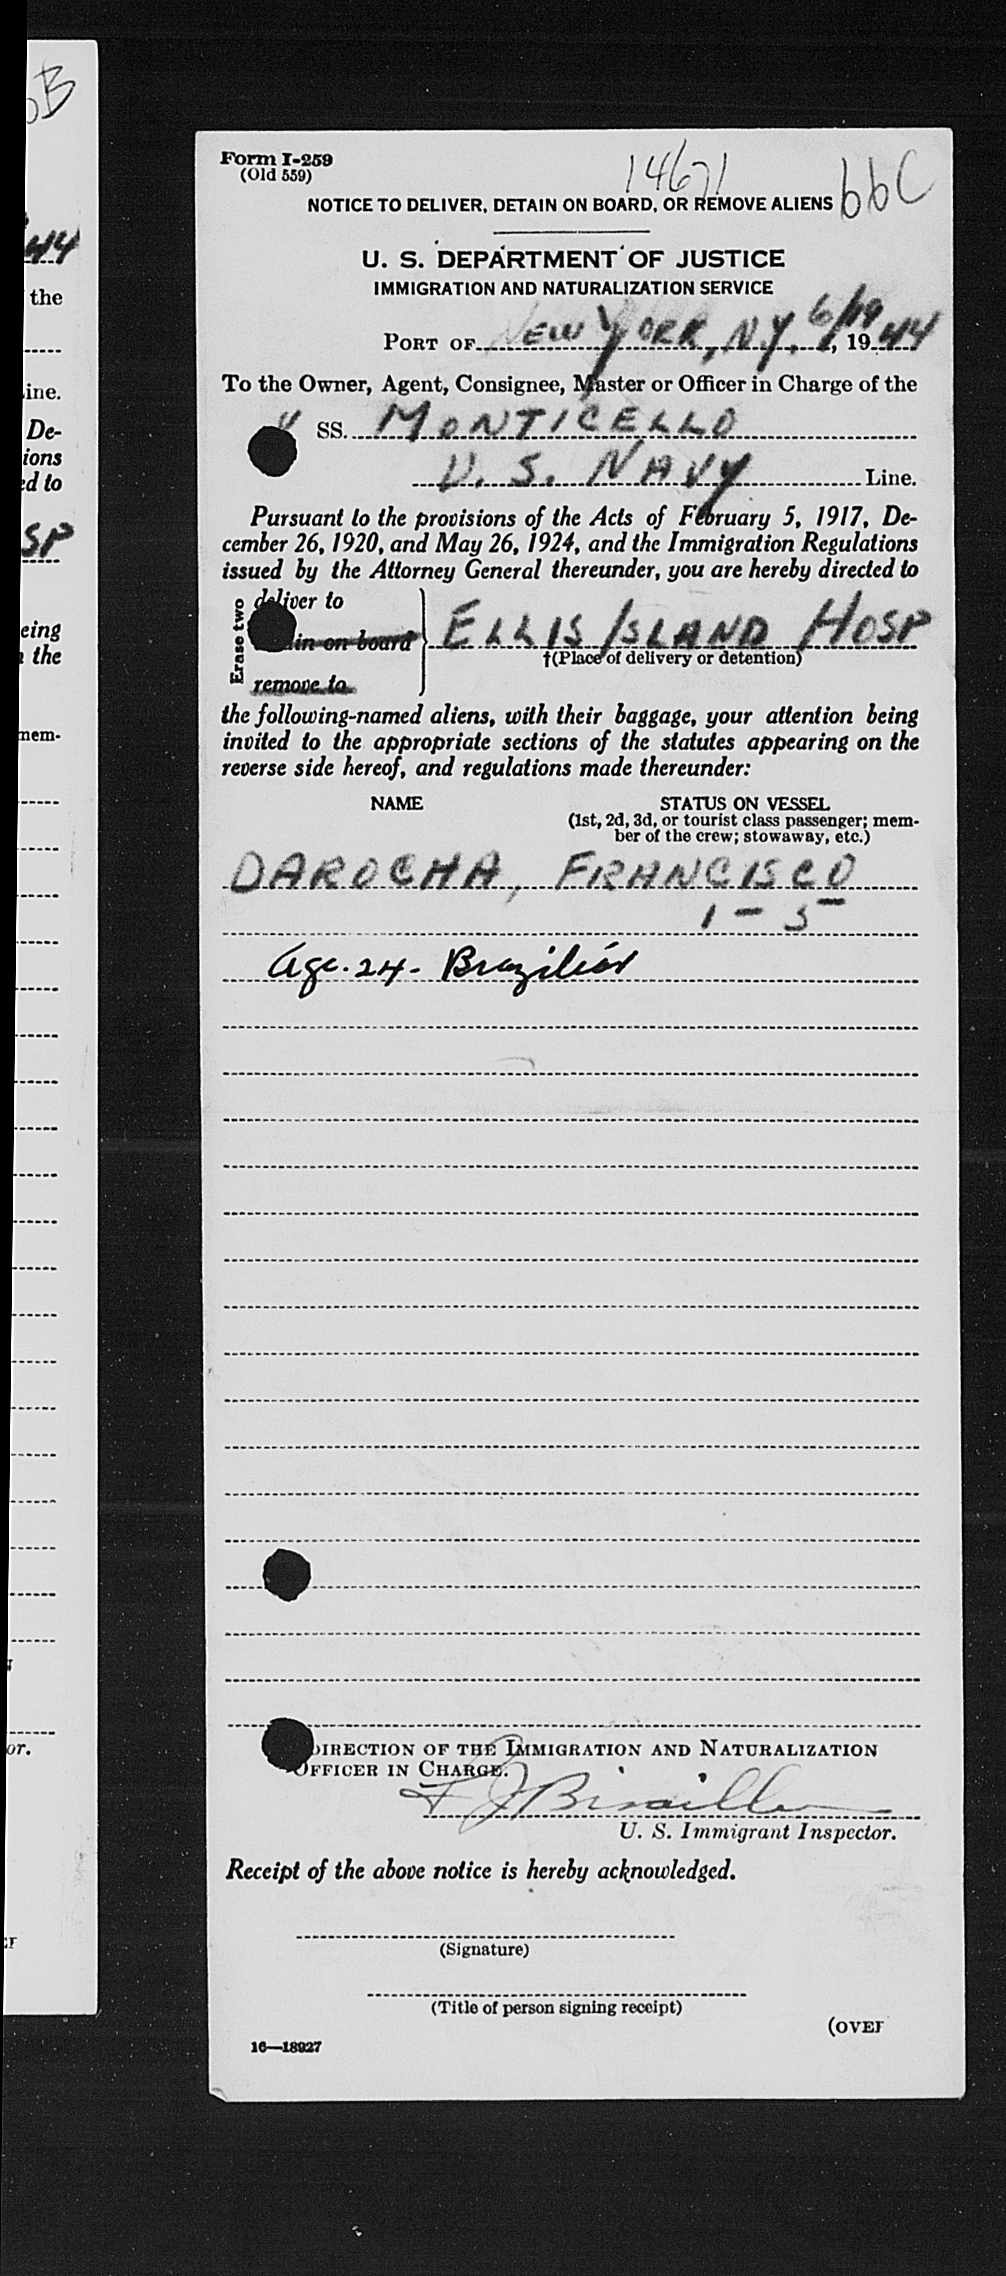 bB
44
the
ine.
De-
ions
ed to
SP
eing
the
mem-
or.
Form I-259
(Old 559)
14671
66C
NOTICE TO DELIVER, DETAIN ON BOARD, OR REMOVE ALIENS
U. S. DEPARTMENT OF JUSTICE
IMMIGRATION AND NATURALIZATION SERVICE
PORT OF NEW YORK, N.Y. 6/19, 1944
To the Owner, Agent, Consignee, Master or Officer in Charge of the
SS. MONTICELLO
U. S. NAVY Line.
Pursuant to the provisions of the Acts of February 5, 1917, De-
cember 26, 1920, and May 26, 1924, and the Immigration Regulations
issued by the Attorney General thereunder, you are hereby directed to
Erase two
deliver to
in on board
remove to
ELLIS ISLAND HOSP
†(Place of delivery or detention)
the following-named aliens, with their baggage, your attention being
invited to the appropriate sections of the statutes appearing on the
reverse side hereof, and regulations made thereunder:
NAME STATUS ON VESSEL
(1st, 2d, 3d, or tourist class passenger; mem-
ber of the crew; stowaway, etc.)
DAROCHA, FRANCISCO
1 - 5
Age. 24 - Brazilian
DIRECTION OF THE IMMIGRATION AND NATURALIZATION
OFFICER IN CHARGE.
U. S. Immigrant Inspector.
Receipt of the above notice is hereby acknowledged.
(Signature)
(Title of person signing receipt)
(OVER
16—18927